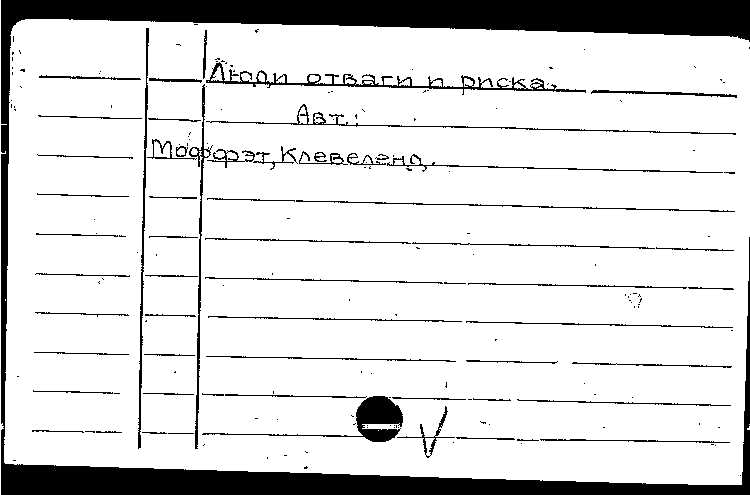 Люди отваги и риска.
Авт.:
Моффэт, Клевеленд.